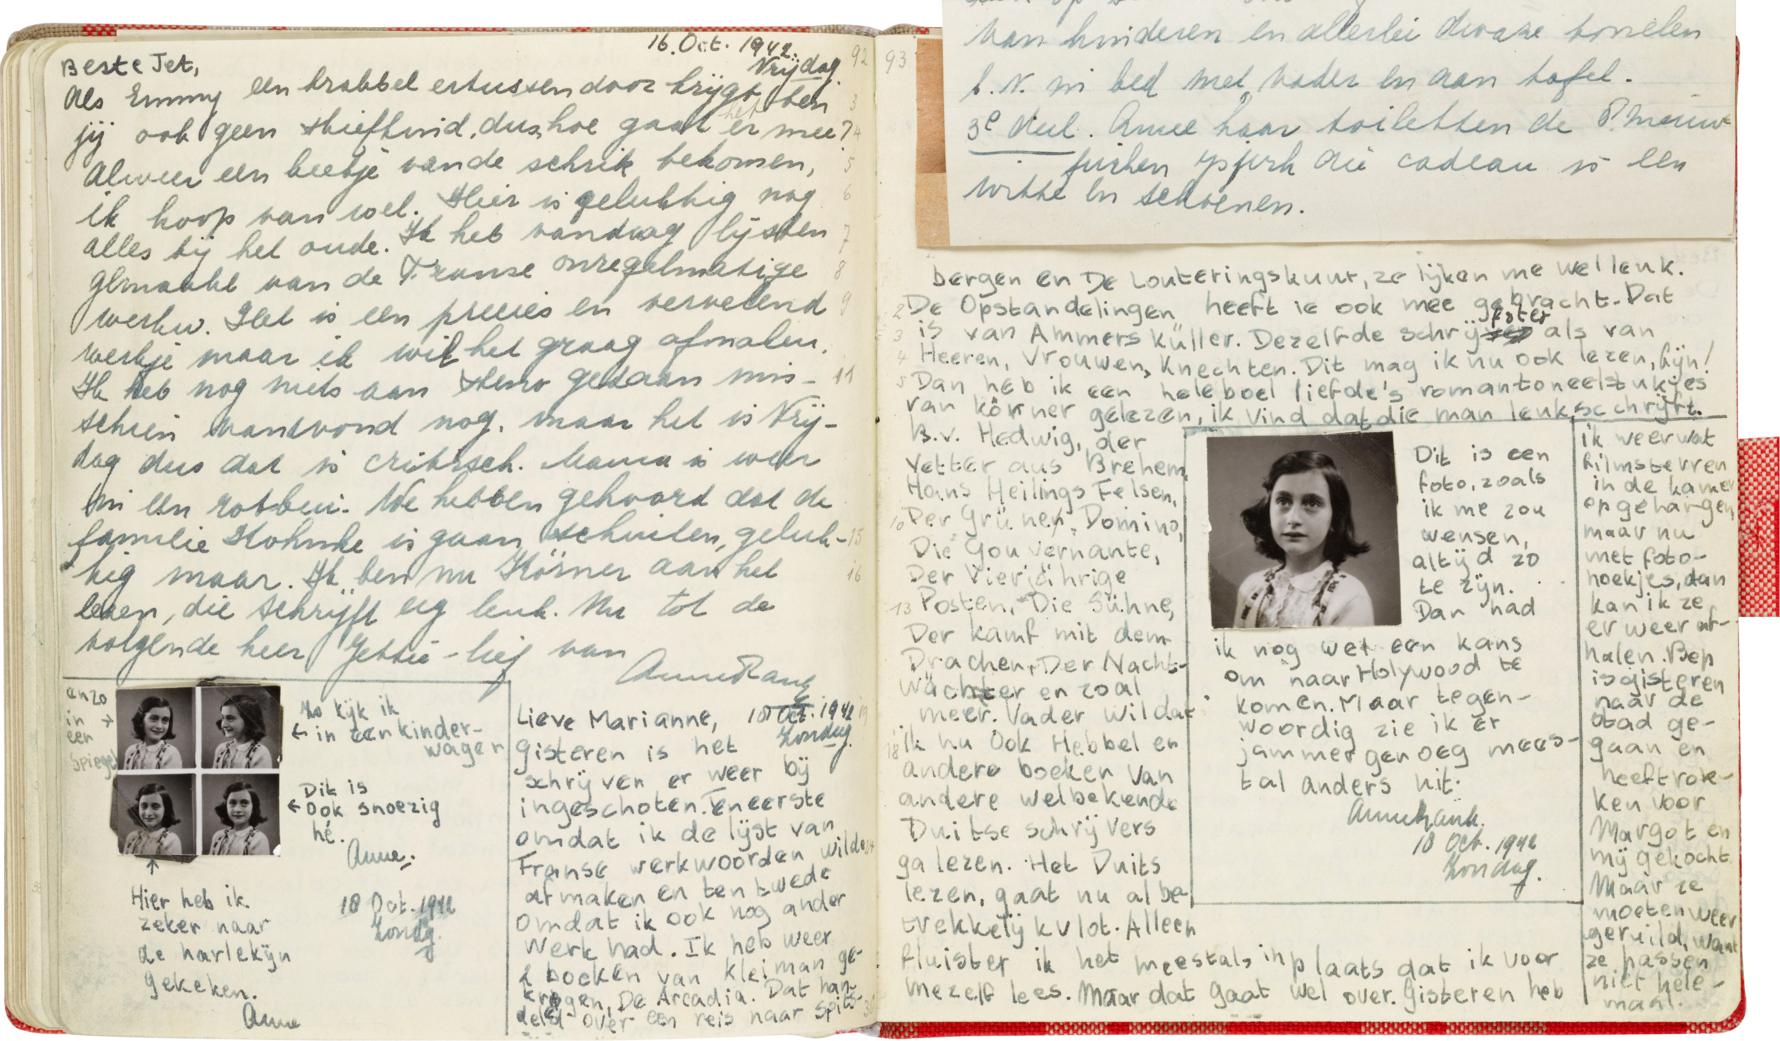 16. Oct. 1942.
Vrijdag.
92
Beste Jet,
Als Emmy een krabbel ertussendoor krijgt ben
jij ook geen stiefkind, dus hoe gaat het er mee?
Alweer een beetje van de schrik bekomen,
ik hoop van wel. Hier is gelukkig nog
alles bij het oude. Ik heb vandaag lijsten
gemaakt van de Franse onregelmatige
werkw. Het is een precies en vervelend
werkje maar ik wil het graag afmaken.
Ik heb nog niets aan steno gedaan mis-
schien vanavond nog, maar het is Vrij-
dag dus dat is critisch. Mama is weer
in een rotbui. We hebben gehoord dat de
familie Kohnke is gaan schuilen, geluk-
kig maar. Ik ben nu Körner aan het
lezen, die schrijft erg leuk. Nu tot de
volgende keer Jettie-lief van
Anne Frank
enzo
in
een
spiegel
Zo kijk ik
in een kinder-
wagen
Dit is
ook snoezig
hé.
Anne.
Hier heb ik
zeker naar
de harlekijn
gekeken.
Anne
18 Oct. 1942
Zondag.
Lieve Marianne,
18 Oct. 1942
Zondag.
Gisteren is het
schrijven er weer bij
ingeschoten. Teneerste
omdat ik de lijst van
Franse werkwoorden wilde
afmaken en ten twede
omdat ik ook nog ander
werk had. Ik heb weer
2 boeken van Kleiman ge-
kregen, De Arcadia. Dat han-
deld over een reis naar Spits-
93
van kinderen en allerlei dwaze tonelen
b.v. in bed met vader en aan tafel.
3e deel. Anne haar toiletten de
witte en schoenen.
bergen en De Louteringskuur, ze lijken me wel leuk.
De Opstandelingen heeft ie ook mee gebracht. Dat
is van Ammers Küller. Dezelfde schrijfster als van
Heeren, Vrouwen, Knechten. Dit mag ik nu ook lezen, fijn!
Dan heb ik een heleboel liefde's romantoneelstukjes
van körner gelezen, ik vind dat die man leuk schrijft.
B.v. Hedwig, der
Vetter aus Brehem,
Hans Heilings Felsen,
Der Grünen Domino,
Die Gouvernante,
Der Vierjährige
Posten, Die Sühne,
Der kamf mit dem
Drachen, Der Nacht-
wächter en zoal
meer. Vader wil dat
ik nu ook Hebbel en
andere boeken van
andere welbekende
Duitse schrijvers
ga lezen. Het Duits
lezen, gaat nu al be-
trekkelijk vlot. Alleen
fluister ik het meestals inplaats dat ik voor
mezelf lees. Maar dat gaat wel over. Gisteren heb
Dit is een
foto, zoals
ik me zou
wensen,
altijd zo
te zijn.
Dan had
ik nog wel een kans
om naar Holywood te
komen. Maar tegen-
woordig zie ik er
jammer genoeg mees-
tal anders uit.
Anne Frank.
18 Oct. 1942
Zondag.
ik weer wat
filmsterren
in de kamer
opgehangen,
maar nu
met foto-
hoekjes, dan
kan ik ze
er weer af-
halen. Bep
is gisteren
naar de
stad ge-
gaan en
heeft rok-
ken voor
Margot en
mij gekocht.
Maar ze
moeten weer
geruild, want
ze passen
niet hele-
maal.